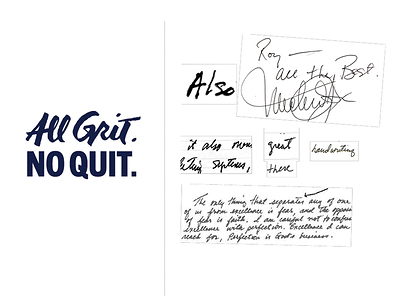 All Grit.
NO QUIT.
Roy —
all the Best.
Also
it also
great
there
handwriting
The only thing that separates any of one
of us from excellence is fear, and the
of fear is faith. I am careful not to confuse
excellence with perfection. Excellence I can
reach for, Perfection is God's business.